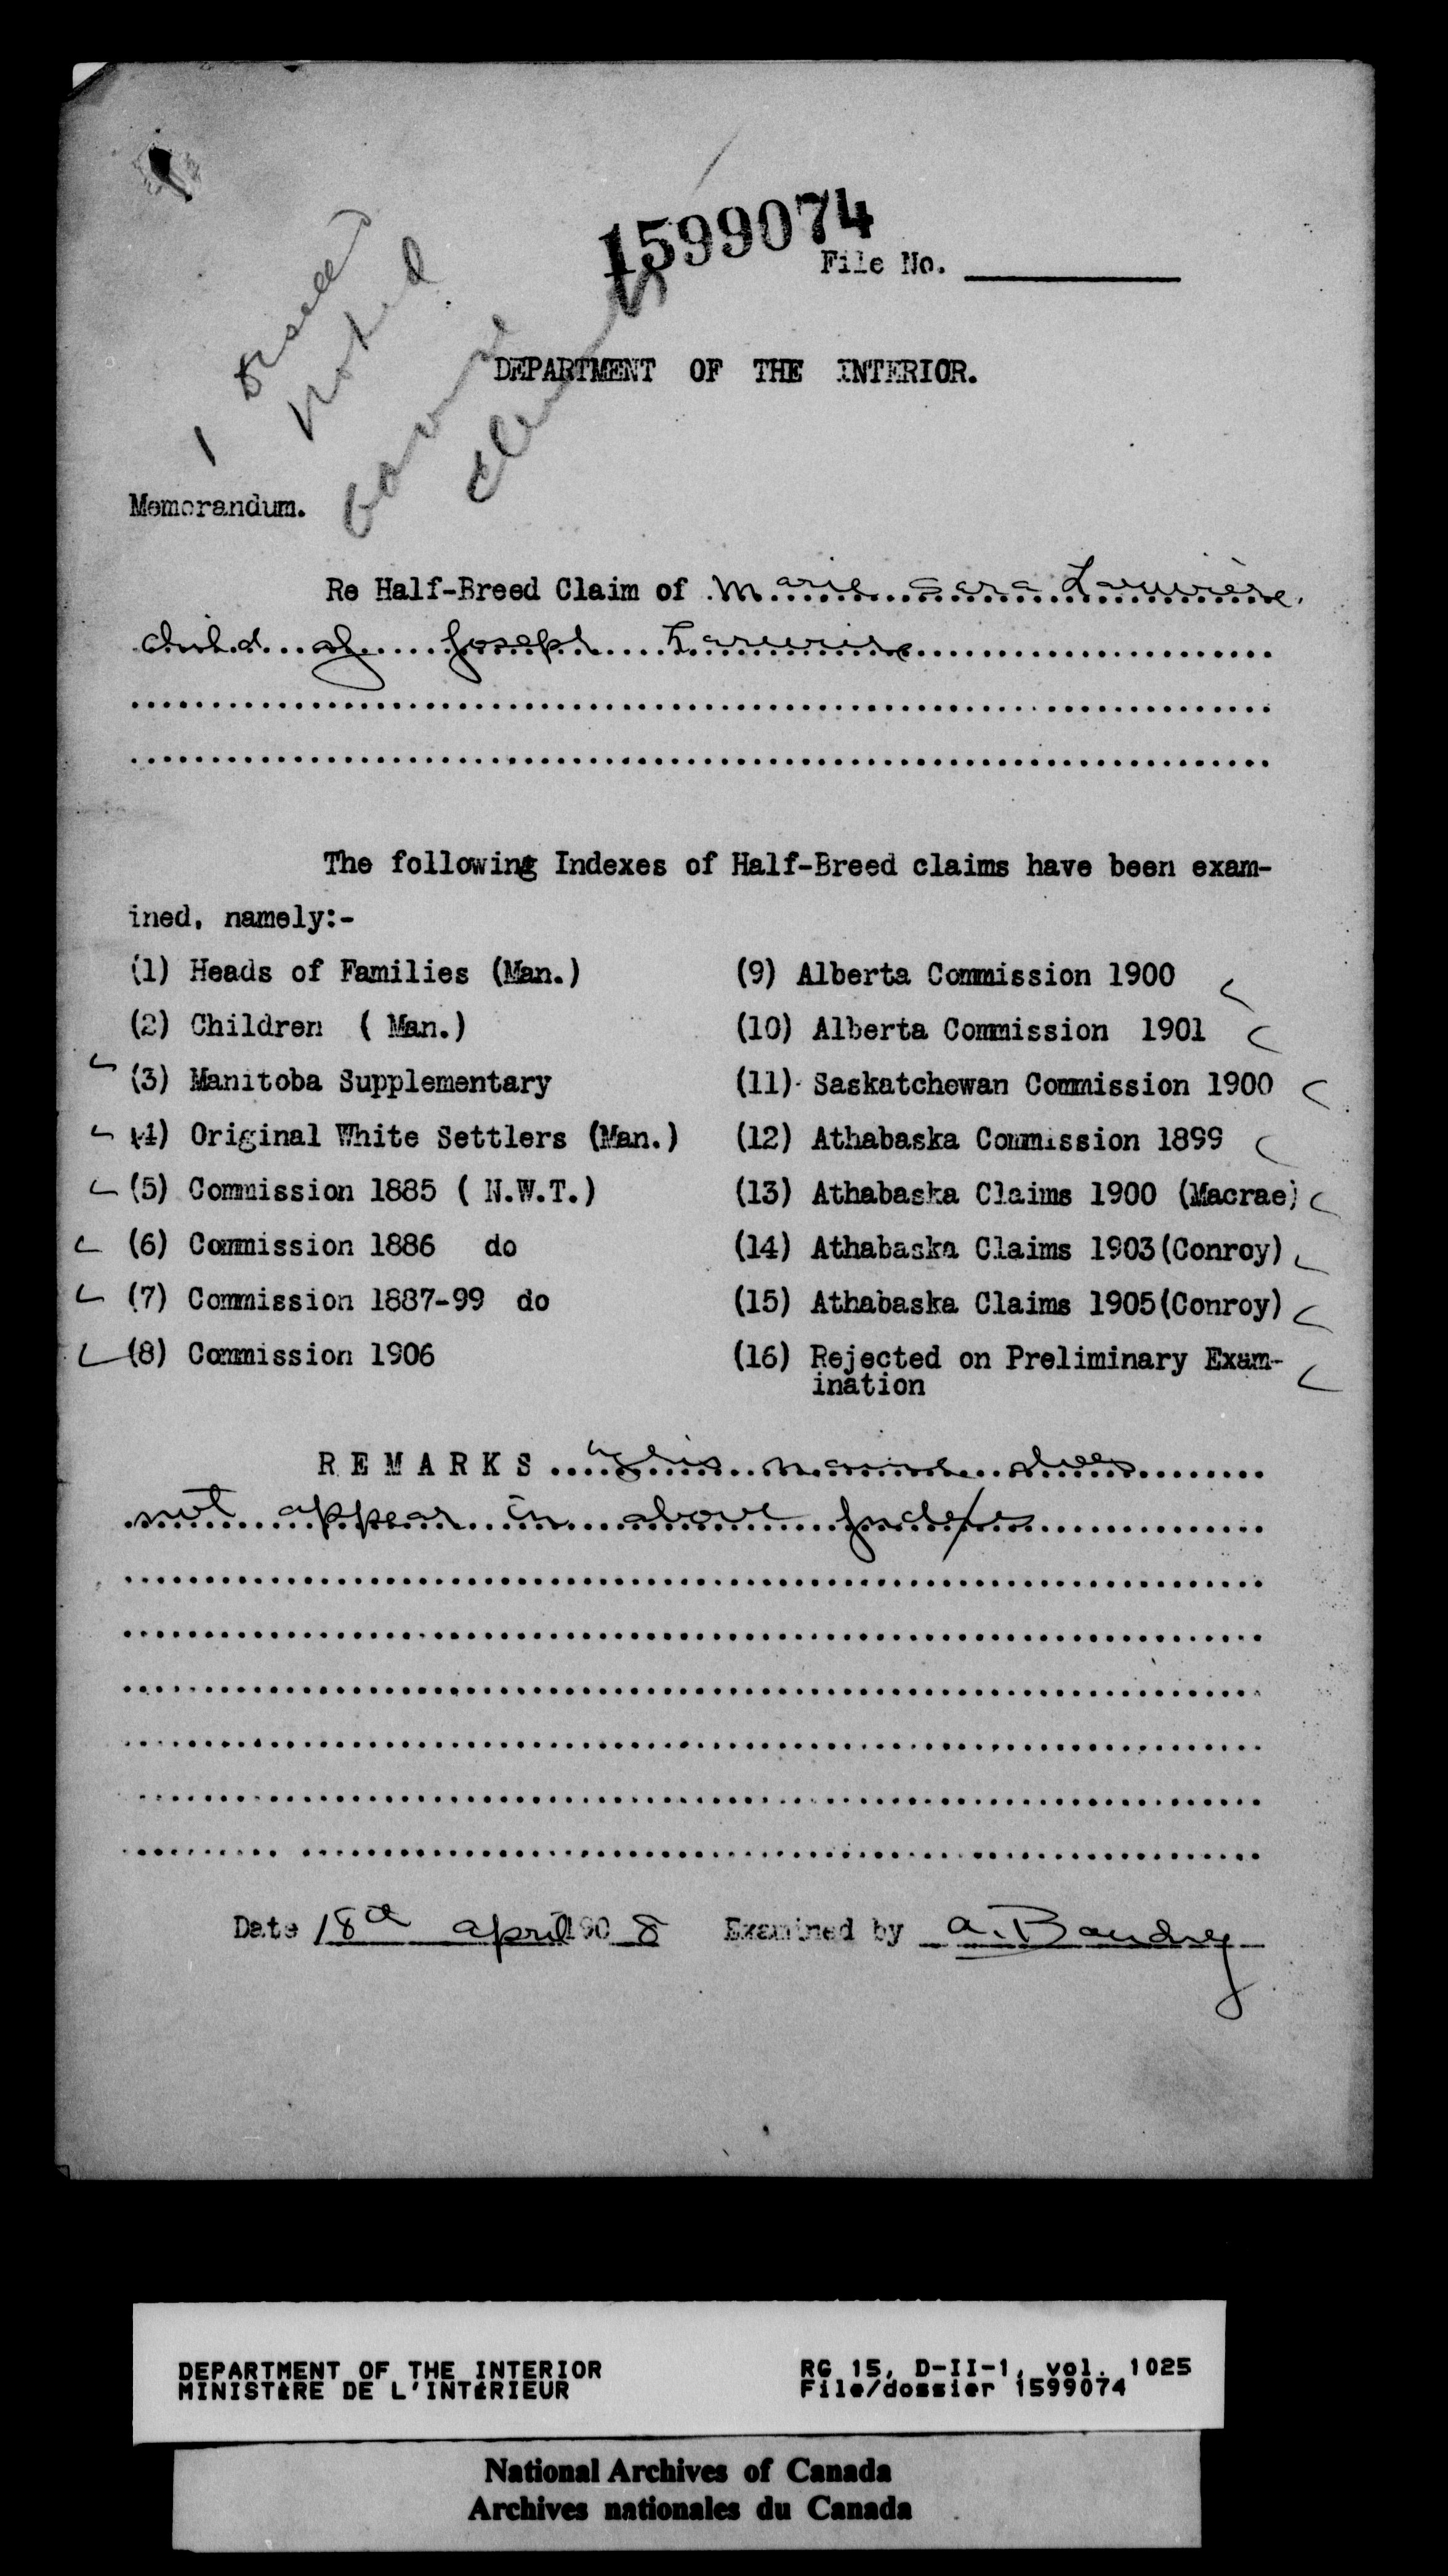 1599074
File No.
DEPARTMENT OF THE INTERIOR.
noted
Memorandum.
Re Half-Breed Claim of Marie Sara Lariviere,
child of Joseph Lariviere
The following Indexes of Half-Breed claims have been exam-
ined, namely:-
(1) Heads of Families (Man.)
(2) Children ( Man.)
(3) Manitoba Supplementary
(4) Original White Settlers (Man.)
(5) Commission 1885 ( N.W.T.)
(6) Commission 1886 do
(7) Commission 1887-99 do
(8) Commission 1906
(9) Alberta Commission 1900
(10) Alberta Commission 1901
(11) Saskatchewan Commission 1900
(12) Athabaska Commission 1899
(13) Athabaska Claims 1900 (Macrae)
(14) Athabaska Claims 1903(Conroy)
(15) Athabaska Claims 1905(Conroy)
(16) Rejected on Preliminary Exam-
ination
REMARKS This name does
not appear in above Indexes
Date 18th April 1908 Examined by A. Baudry
DEPARTMENT OF THE INTERIOR
MINISTÈRE DE L'INTÉRIEUR
RG 15, D-II-1, vol. 1025
File/dossier 1599074
National Archives of Canada
Archives nationales du Canada